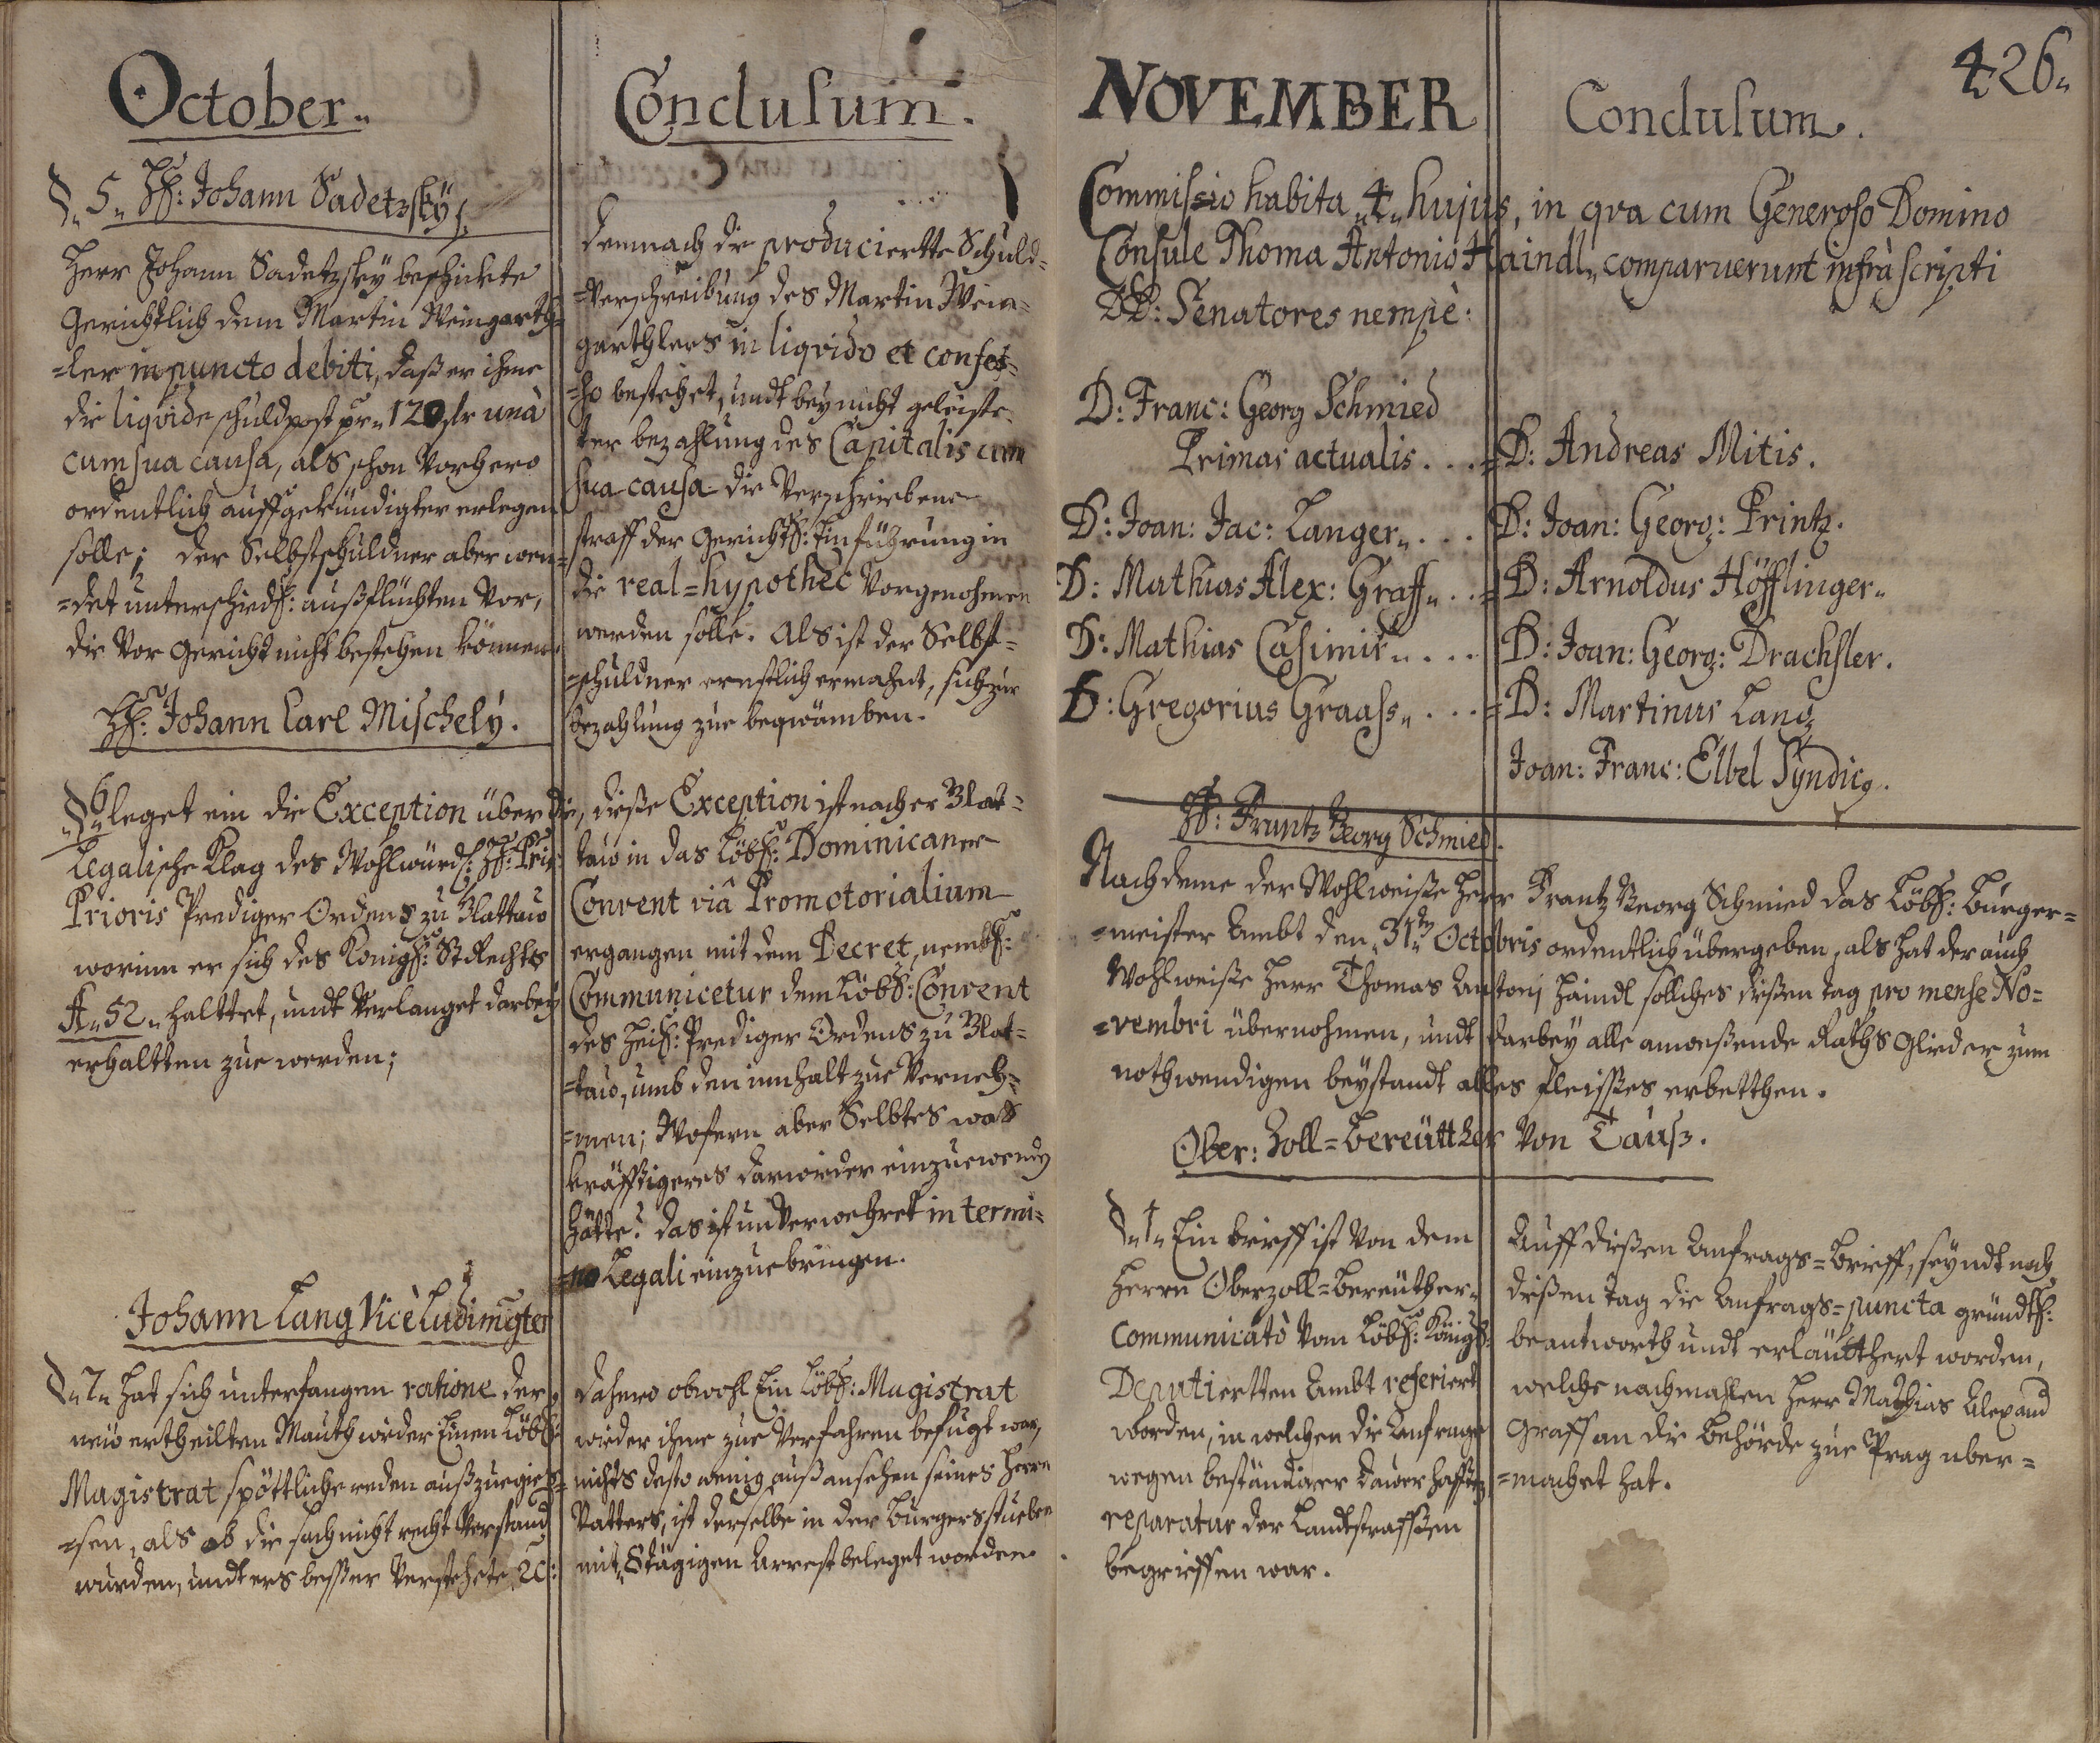 October
§. 5. Hℓ: Johann Sadetzsky.
Herr Johann Sadetzsky beschickte
Gerichtlich dem Martin Weingarth-
=ler in puncto debiti, daß er ihme
die liqvide schuldpost pr. 120 fr unà
cum sua causa, als schon Vorhero
ordentlich auffgekündigter erlegen
solle; der Selbstschuldner aber wen-
=det unterschiedℓ: außflüchten Vor,
die Vor Gericht nicht bestehen können.
Hℓ: Johann Carl Mischely.
§ 6. leget ein die Exception über die
Legalische Klag des Wohlwürdℓ: Hℓ: Pris
Prioris Prediger Ordens zu Klattaw
worinn er sich des Königℓ: StRechts
A. 52. halttet, undt Verlanget darbey
erhaltten zue werden;
Johann Lang Vicè Ludimgter
§. 7. hat sich unterfangen ratione der
neü ertheilten Mauth wieder Einen Löbℓ:
Magistrat spöttliche reden außzuegies-
=sen, als ob die sach nicht recht Verstand
wurden, undt ers besser Verstehete ꝛc:
Conclusum.
demnach die produciertte Schuld-
=Verschreibung des Martin Wein-
garthlers in liqvido et confes-
=so bestehet, undt bey nicht geleiste-
ter bezahlung des Capitalis cum
sua causa die Verschriebene
straff der Gerichtℓ: Einführung in
die real=hypothec Vorgenohmen
werden solle. Als ist der Selbst-
=schuldner ernstlich ermahnt, sich zur
bezahlung zue beqwämben.
, dieße Exception ist nacher Klat-
taw in das Löbℓ: Dominicaner
Convent viâ Promotorialium
ergangen mit dem Decret, nembℓ:
Communicetur dem Löbℓ: Convent
des Heilℓ: Prediger Ordens zu Klat-
=taw, umb den innhalt zue Verneh-
=men; Wofern aber Selbtes was
kräfftigeres darwieder einzuewendn
hätte? das ist unVerwehret in termi-
=no Legali einzuebringen.
dahero obwohl Ein Löbℓ: Magistrat
wieder ihme zue Verfahren befugt war,
nichts desto wenig. auß ansehen seines Herrn
Vatters, ist derselbe in der Burgersstueben
mit 8tägigen Arrest beleget worden.
426.
NOVEMBER
Conclusum.
Commissio habita 4. hujus, in qva cum Generoso Domino
Consule Thoma Antonio Haindl, comparuerunt infrà scripti
DD: Senatores nempè:
D: Franc: Georg Schmied
Primas actualis . . . = D: Andreas Mitis.
D: Joan: Jac: Langer. . . . D: Joan: Georg: Printz.
D: Mathias Alex: Graff. . . = D: Arnoldus Höfflinger.
D: Mathias Casimir. . . . D: Joan: Georg: Drachsler.
D: Gregorius Graass. . . . = D: Martinus Lang
Joan: Franc: Elbel Syndicg.
Hℓ: Frantz Georg Schmied.
Nachdeme der Wohlweiße Herr Frantz Georg Schmied das Löbℓ: Burger-
=meister Ambt den 31ten Octobris ordentlich übergeben, als hat der auch
Wohlweiße Herr Thomas Antonj Haindl sollches dießen tag pro mense No-
=vembri übernohmen, undt darbey alle anweßende Raths Glieder zum
nothwendigen beystandt alles fleisses erbetthen.
Ober: Zoll=bereütther Von Tauß.
§. 1. Ein brieff ist Von dem
Herrn Oberzoll=bereüther
Communicatò Vom Löbℓ: Königℓ:
Deputiertten Ambt referiert
worden, in welchen die Anfrage
wegen beständiger dauerhafften
reparatur der Landtstrassen
begrieffen war.
Auff dießen Anfrags=brieff, seyndt noch
dießen tag die Anfrags=puncta gründtℓ:
beantworth undt erläütthert worden,
welche nachmahlen Herr Mathias Alexand
Graff an die Behörde zue Prag uber-
=machet hat.